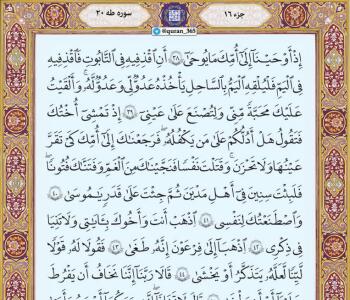 جزء ١٦
@quran_365
سوره طه ٢٠
إِذْ أَوْحَيْنَا إِلَىٰ أُمِّكَ مَا يُوحَىٰ ٣٨ أَنِ اقْذِفِيهِ فِي التَّابُوتِ فَاقْذِفِيهِ
فِي الْيَمِّ فَلْيُلْقِهِ الْيَمُّ بِالسَّاحِلِ يَأْخُذْهُ عَدُوٌّ لِّي وَعَدُوٌّ لَّهُ ۚ وَأَلْقَيْتُ
عَلَيْكَ مَحَبَّةً مِّنِّي وَلِتُصْنَعَ عَلَىٰ عَيْنِي ٣٩ إِذْ تَمْشِي أُخْتُكَ
فَتَقُولُ هَلْ أَدُلُّكُمْ عَلَىٰ مَن يَكْفُلُهُ ۖ فَرَجَعْنَاكَ إِلَىٰ أُمِّكَ كَيْ تَقَرَّ
عَيْنُهَا وَلَا تَحْزَنَ ۚ وَقَتَلْتَ نَفْسًا فَنَجَّيْنَاكَ مِنَ الْغَمِّ وَفَتَنَّاكَ فُتُونًا ۚ
فَلَبِثْتَ سِنِينَ فِي أَهْلِ مَدْيَنَ ثُمَّ جِئْتَ عَلَىٰ قَدَرٍ يَا مُوسَىٰ ٤٠
وَاصْطَنَعْتُكَ لِنَفْسِي ٤١ اذْهَبْ أَنتَ وَأَخُوكَ بِآيَاتِي وَلَا تَنِيَا
فِي ذِكْرِي ٤٢ اذْهَبَا إِلَىٰ فِرْعَوْنَ إِنَّهُ طَغَىٰ ٤٣ فَقُولَا لَهُ قَوْلًا
لَّيِّنًا لَّعَلَّهُ يَتَذَكَّرُ أَوْ يَخْشَىٰ ٤٤ قَالَا رَبَّنَا إِنَّنَا نَخَافُ أَن يَفْرُطَ